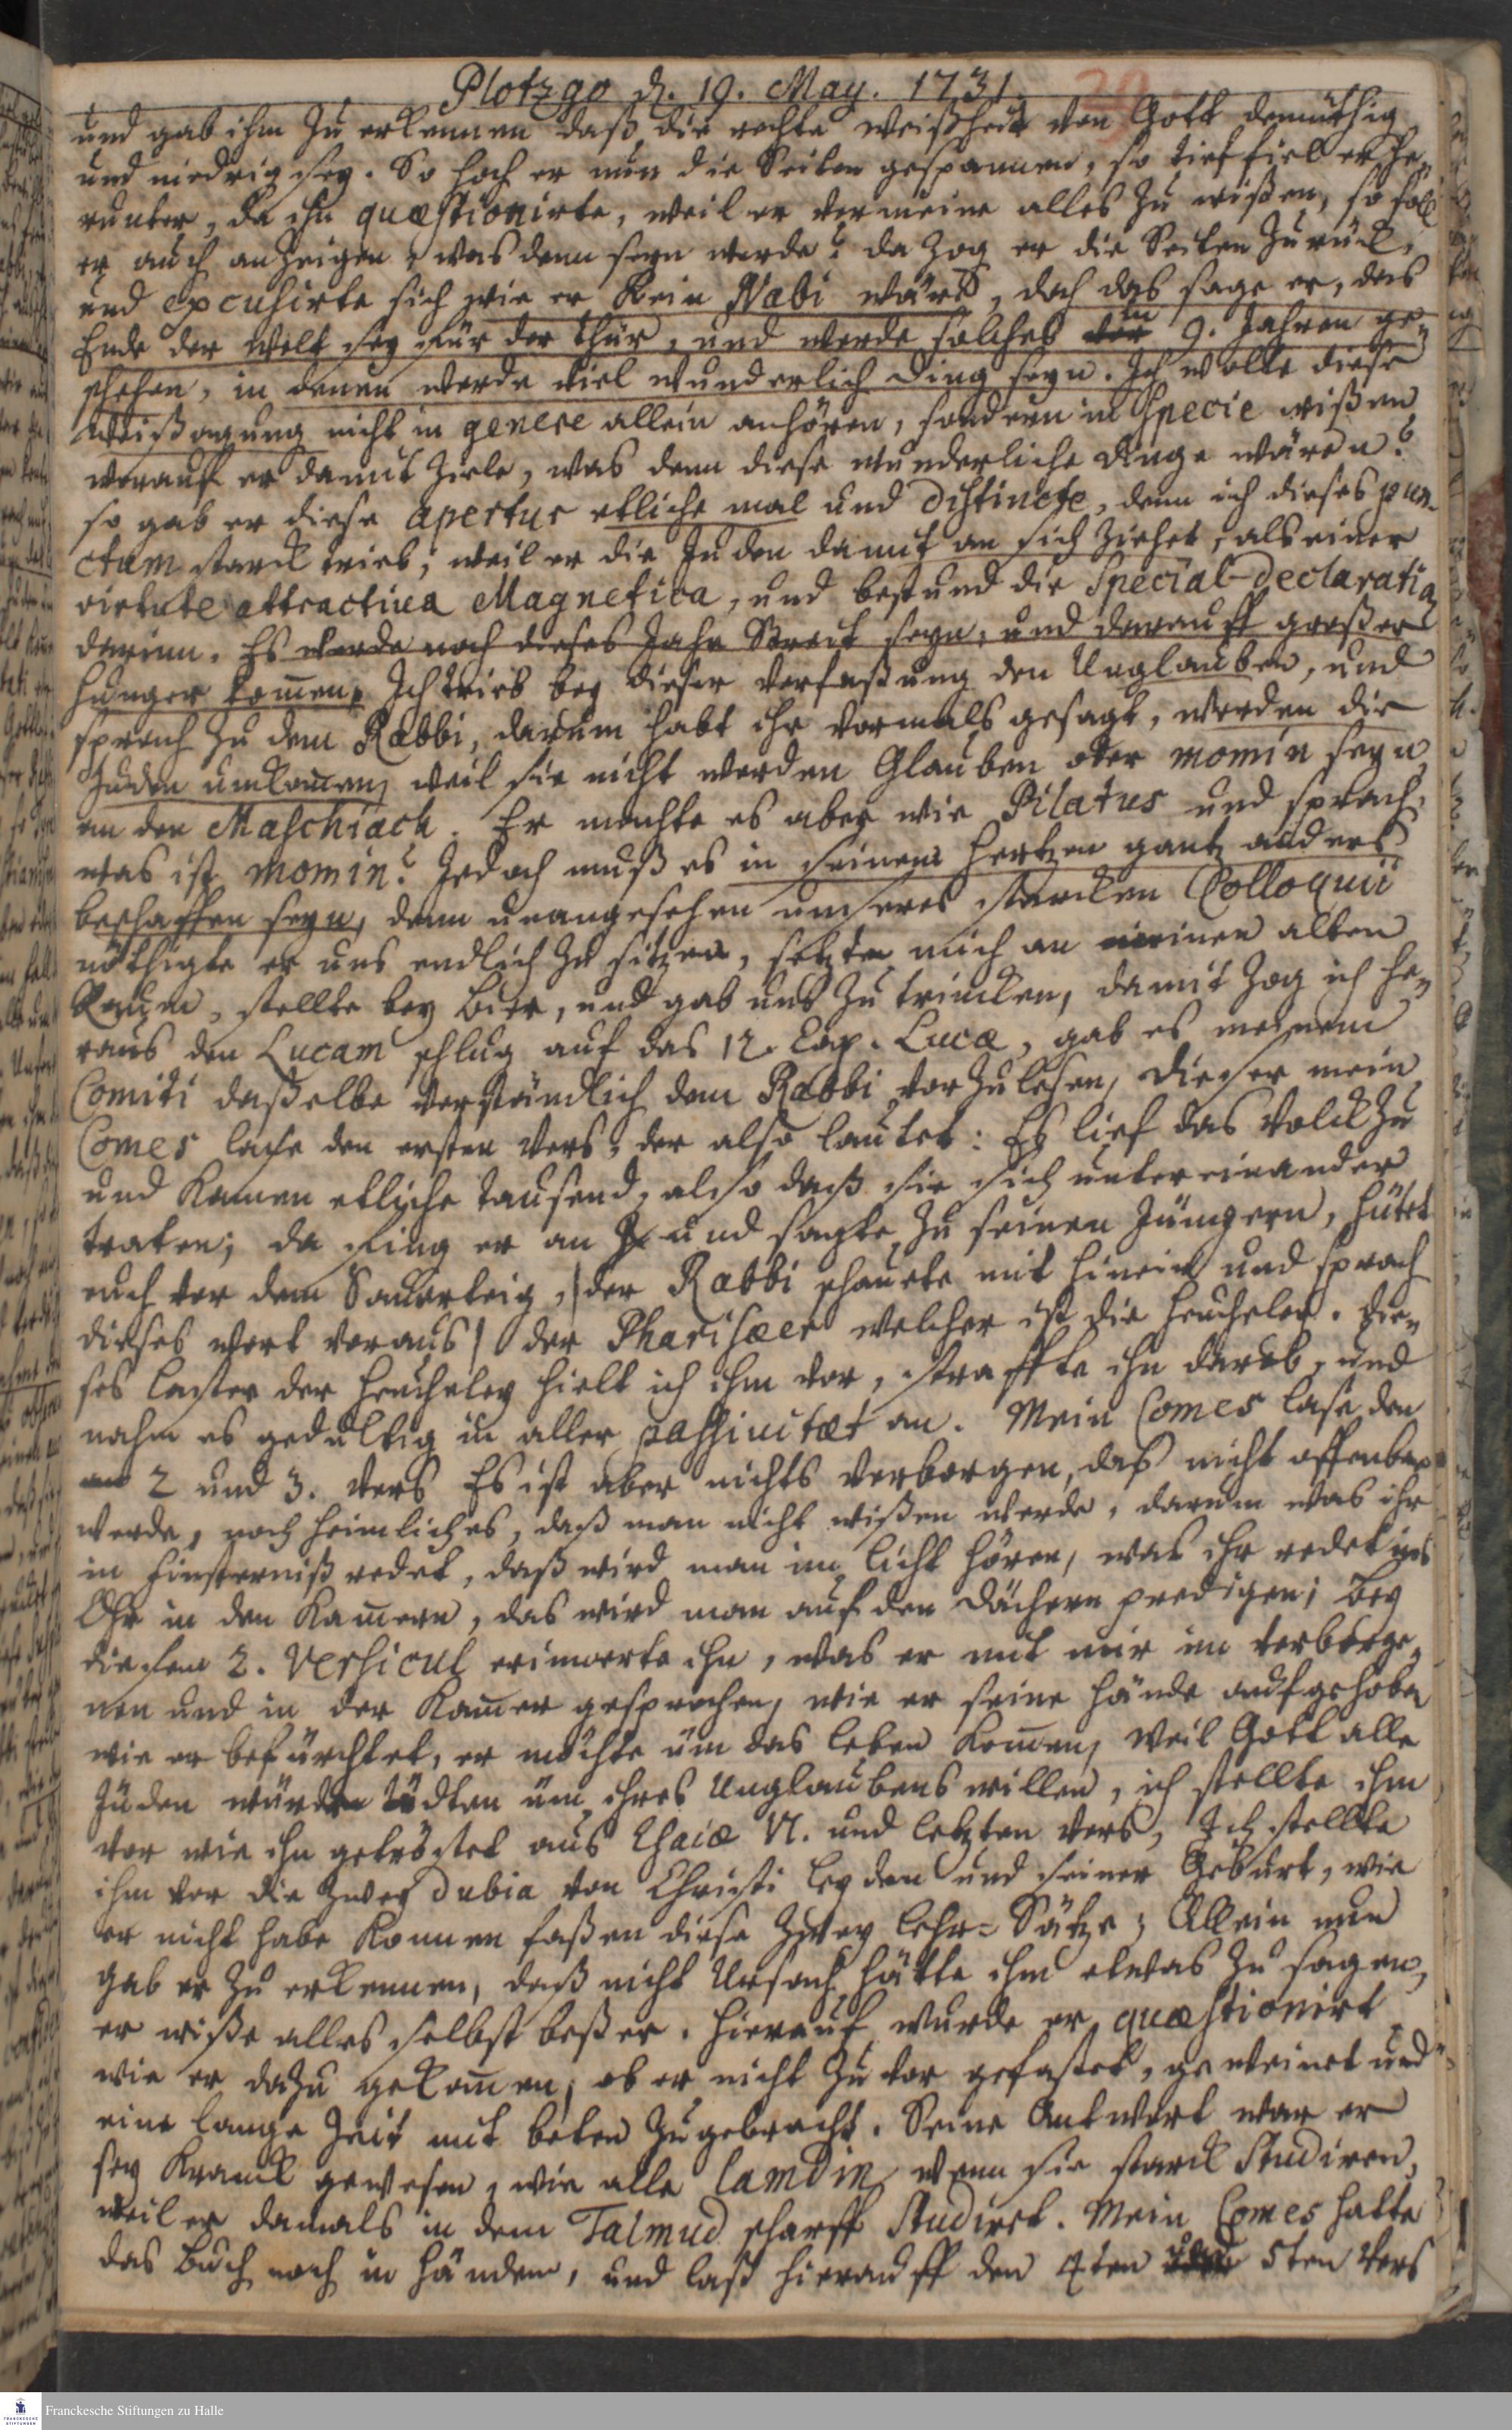 Plotzgo d. 19. May. 1731.
29
und gab ihm zu erkennen daß die rechte Weißheit von Gott demüthig
und niedrig sey. So hoch er nun die Seiten gespannen, so tief fiel er he-
runter, da ihn quæstionirte, weil er vermeine alles zu wißen, so soll
er auch anzeigen, was denn seyn werde? da zog er die Seiten zurück,
und excusirte sich wie er kein Nabi wäre, doch das sage er, das
Ende der Welt sey für der Thür, und werde solches in 9. Jahren ge-
schehen, in denen werde viel wunderlich Ding seyn. Ich wolte diese
Weißagung nicht in genere allein anhören, sondern in Specie wißen
worauf er damit ziele, was denn diese wunderliche Dinge wären?
so gab er diese apertur etliche mal und distincte, denn ich dieses pun-
ctum starck trieb, weil er die Juden damit an sich ziehet, als einer
virtute attractiva Magnetica, und bestund die Special-Declaratio
darinn. Es werde noch dieses Jahr Streit seyn, und darauff großer
Hunger kom̄en. Ich trieb bey dieser Verfaßung den Unglauben, und
sprach zu dem Rabbi, darum habt ihr vormals gesagt, werden die
Juden umkom̄en, weil sie nicht werden Glauben oder momin seyn
an den Maschiach. Er machte es aber wie Pilatus und sprach,
was ist momin? Jedoch muß es in seinem Hertzen gantz anders
beschaffen seyn, denn unangesehen unseres starcken Colloquii
nöthigte er uns endlich zu sitzen, setzte mich an meinen alten
Raum, stellte bey Bier, und gab uns zu trincken, damit zog ich he-
raus den Lucam schlug auf das 12. Cap. Lucæ, gab es meinem
Comiti daßelbe verständlich dem Rabbi vorzulesen, dieser mein
Comes lase den ersten Vers, der also lautet: Es lief das Volck zu
und kamen etliche Tausend, also daß sie sich untereinander
traten; da fing er an und sagte zu seinen Jüngern, hütet
euch vor dem Sauerteig, /der Rabbi schauete mit hinein und sprach
dieses Wort voraus/ der Pharisæer welcher ist die Heucheley. Die-
ses Laster der Heucheley hielt ich ihm vor, straffte ihn darob, und
nahm es gedultig in aller passivitæt an. Mein Comes lase den
2 und 3. Vers Es ist aber nichts verborgen, daß nicht offenbar
werde, noch heimliches, daß man nicht wißen werde, darum was ihr
in Finsterniß redet, daß wird man im Licht hören, was ihr redet ins
Ohr in den Kam̄ern, das wird man auf den Dächern predigen; bey
diesem 2. Versicul erinnerte ihn, was er mit mir im verborge-
nen und in der Kam̄er gesprochen, wie er seine Hände aufgehoben
wie er befürchtet, er möchte um das Leben kom̄en, weil Gott alle
Juden würde tödten um ihres Unglaubens willen, ich stellte ihm
vor wie ihn getröstet aus Esaiæ VI. und letzten Vers, Ich stellte
ihm vor die zwey dubia von Christi Leyden und seiner Geburt, wie
er nicht habe konnen faßen diese zwey Lehr-Sätze; Allein nun
gab er zu erkennen, daß nicht Ursach hätte ihm etwas zu sagen,
er wiße alles selbst beßer. Hierauf wurde er quæstionirt
wie er dazu gekom̄en, ob er nicht zuvor gefastet, geweinet und
eine lange Zeit mit beten zugebracht. Seine Antwort war er
sey kranck gewesen, wie alle Lamdin, wenn sie starck Studiren,
weil er damals in dem Talmud scharff Studiret. Mein Comes hatte
das Buch noch in Händen, und laß hierauff den 4ten und 5ten Vers
Franckesche Stiftungen zu Halle